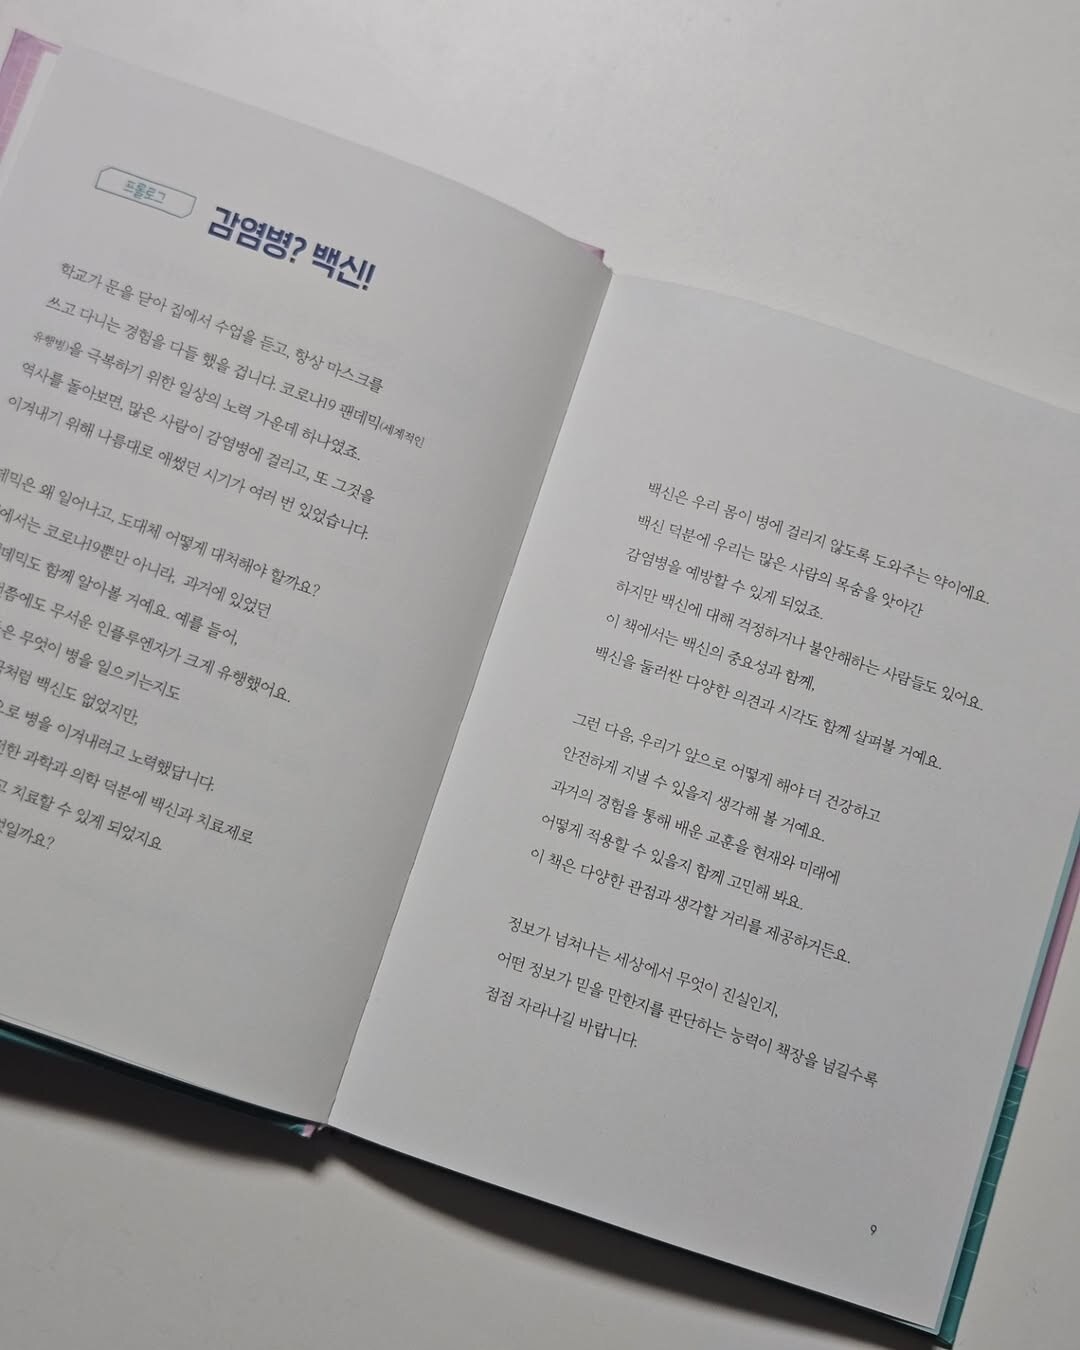 프롤로그
감염병? 백신!
학교가 문을 닫아 집에서 수업을 듣고, 항상 마스크를
쓰고 다니는 경험을 다들 했을 겁니다. 코로나19 팬데믹(세계적인
유행병)을 극복하기 위한 일상의 노력 가운데 하나였죠.
역사를 돌아보면, 많은 사람이 감염병에 걸리고, 또 그것을
이겨내기 위해 나름대로 애썼던 시기가 여러 번 있었습니다.
왜 일어나고, 도대체 어떻게 대처해야 할까요?
코로나19뿐만 아니라, 과거에 있었던
함께 알아볼 거예요. 예를 들어,
무서운 인플루엔자가 크게 유행했어요.
무엇이 병을 일으키는지도
백신도 없었지만,
병을 이겨내려고 노력했답니다.
과학과 의학 덕분에 백신과 치료제로
치료할 수 있게 되었지요
백신은 우리 몸이 병에 걸리지 않도록 도와주는 약이에요.
백신 덕분에 우리는 많은 사람의 목숨을 앗아간
감염병을 예방할 수 있게 되었죠.
하지만 백신에 대해 걱정하거나 불안해하는 사람들도 있어요.
이 책에서는 백신의 중요성과 함께,
백신을 둘러싼 다양한 의견과 시각도 함께 살펴볼 거예요.
그런 다음, 우리가 앞으로 어떻게 해야 더 건강하고
안전하게 지낼 수 있을지 생각해 볼 거예요.
과거의 경험을 통해 배운 교훈을 현재와 미래에
어떻게 적용할 수 있을지 함께 고민해 봐요.
이 책은 다양한 관점과 생각할 거리를 제공하거든요.
정보가 넘쳐나는 세상에서 무엇이 진실인지,
어떤 정보가 믿을 만한지를 판단하는 능력이 책장을 넘길수록
점점 자라나길 바랍니다.
9